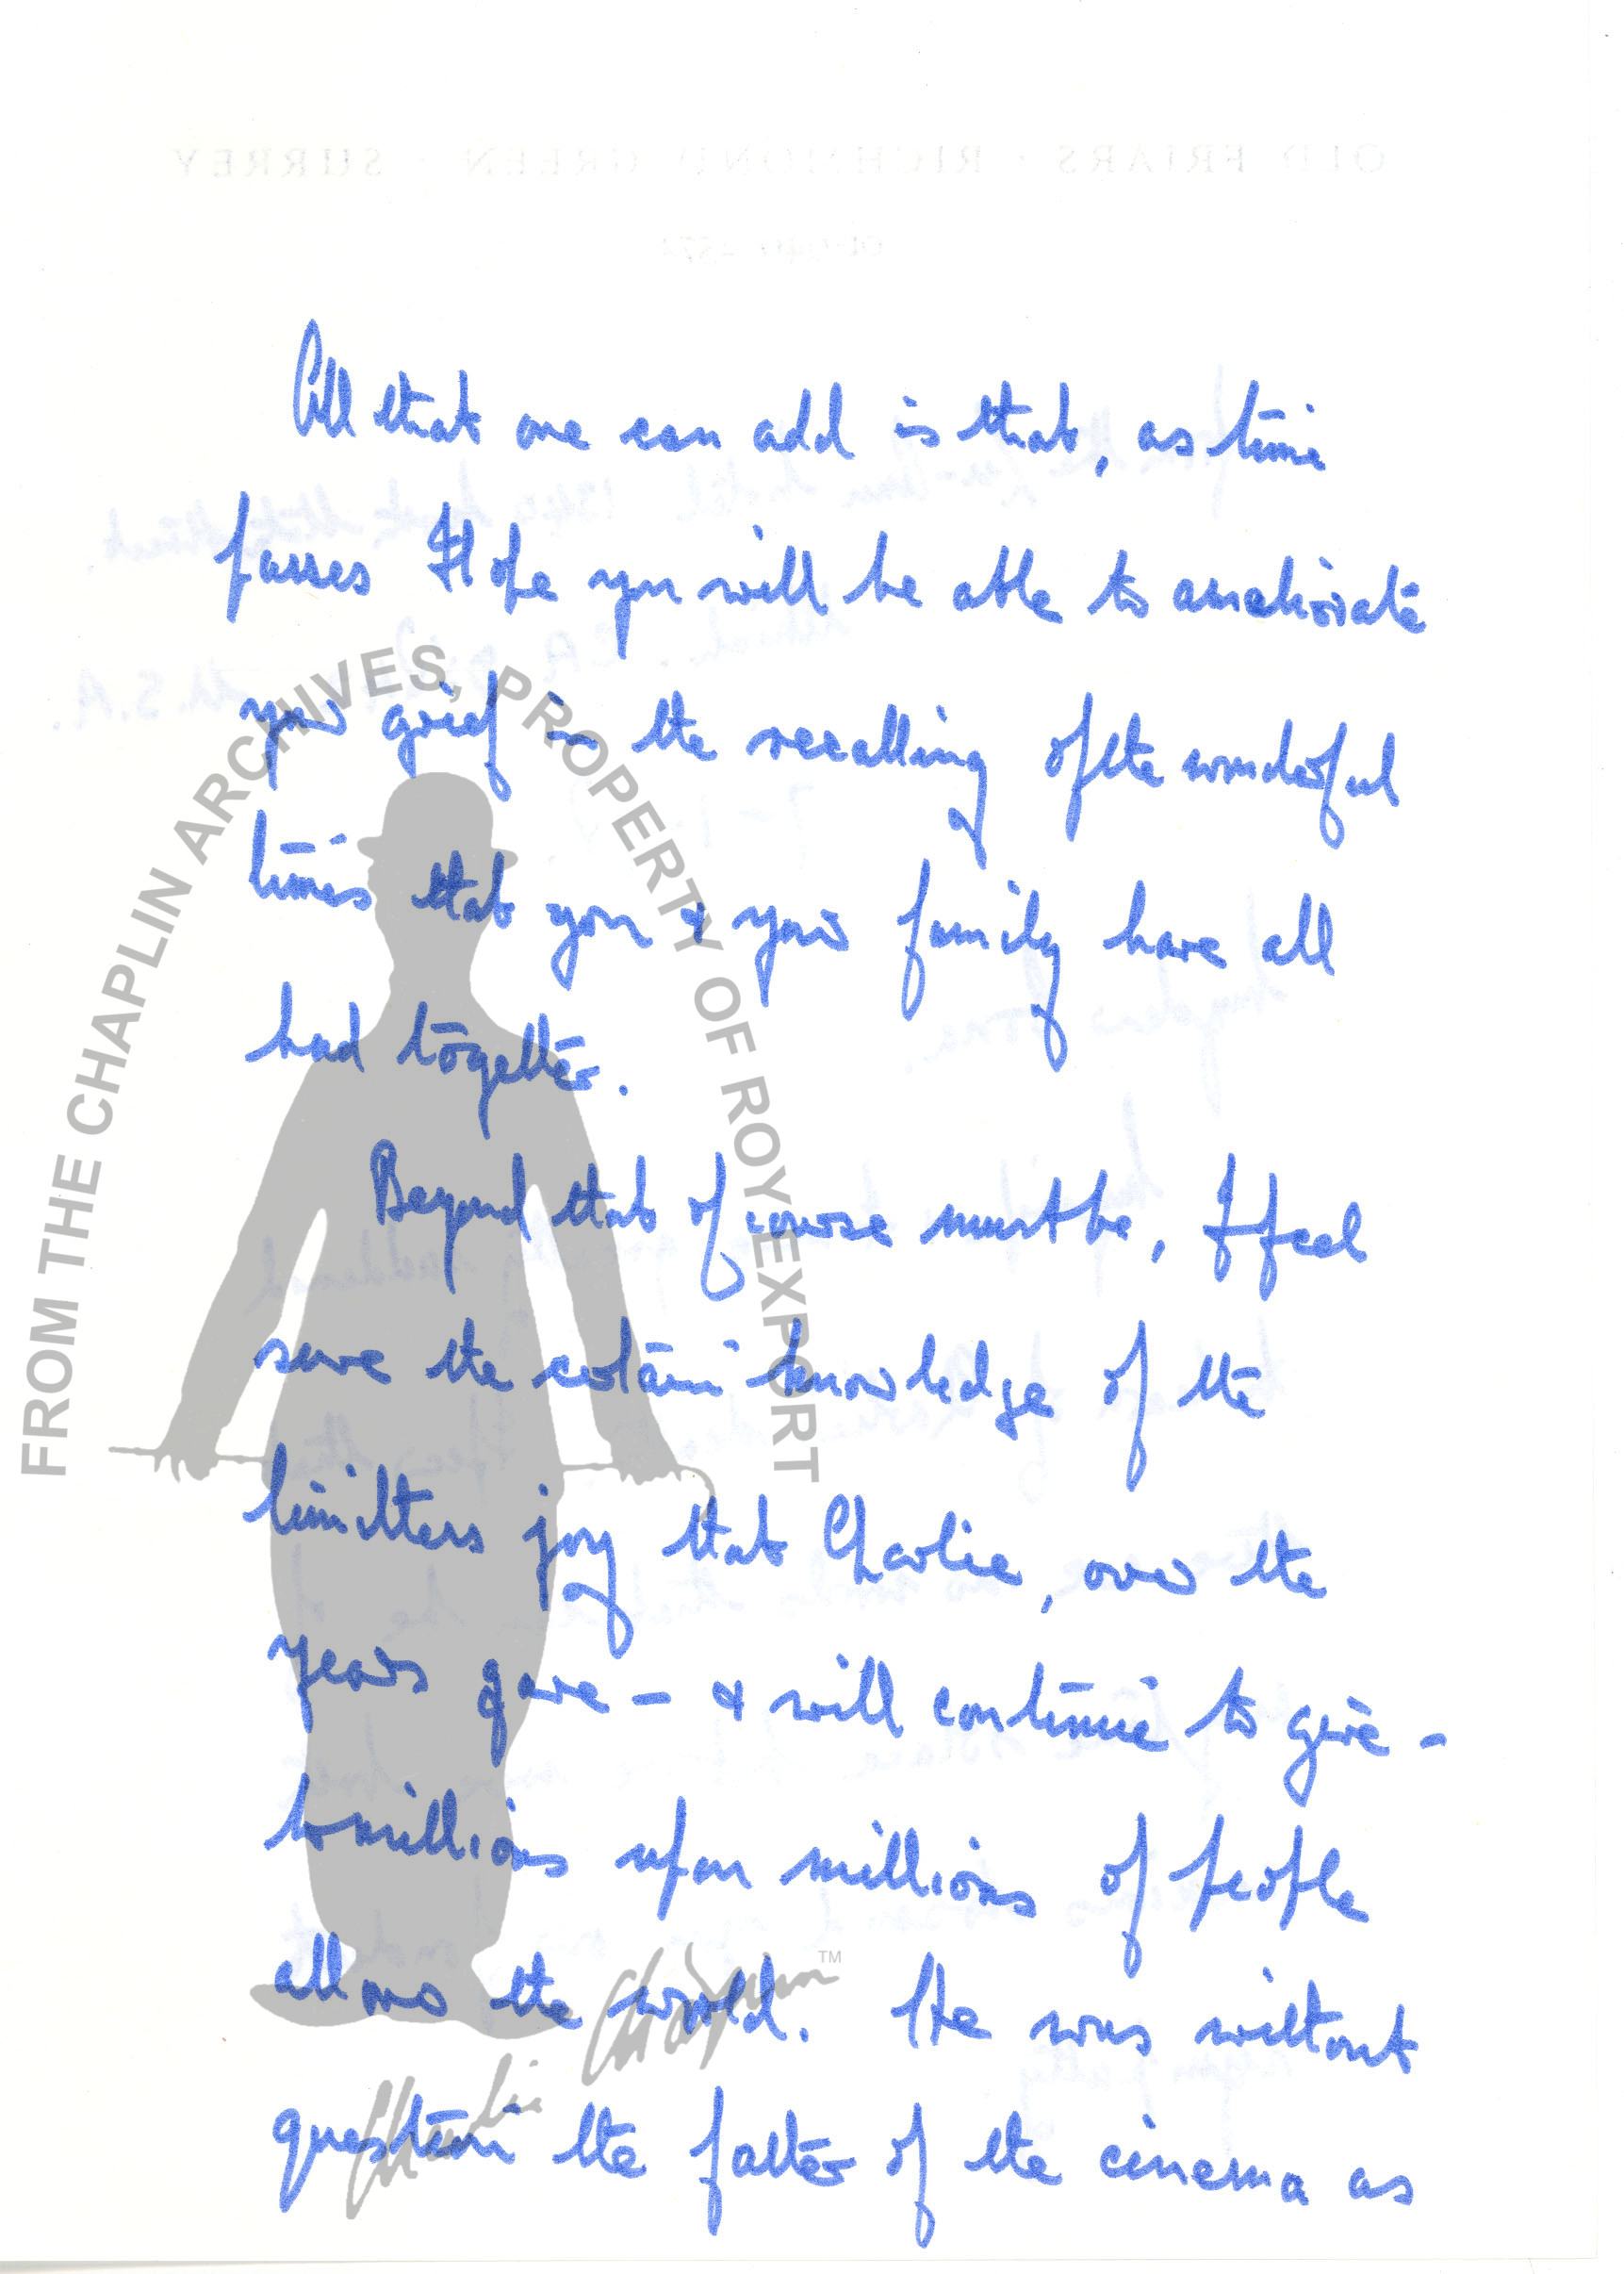 OLD FRIARS · RICHMOND GREEN · SURREY
All that one can add is that, as time
passes I hope you will be able to ameliorate
your grief in the recalling of the wonderful
times that you & your family have all
had together.
Beyond that of course must be, I feel
sure the certain knowledge of the
limitless joy that Charlie, over the
years gave – & will continue to give –
to millions upon millions of people
all over the world. He was without
question the father of the cinema as
FROM THE CHAPLIN ARCHIVES, PROPERTY OF ROY EXPORT
Charlie Chaplin TM